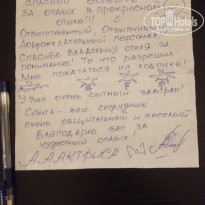 TopHotels
спасибо большое
за отдых в прекрасном
отеле!!!
Ответственный, отзывчивый,
Доброжелательный персонал.
Спасибо владельцу отеля за
понимание! То что разрешил
мне покататься на лодочке!
У Вас очень сытный завтрак!
ваш сотрудник
очень общительный и веселый
Благодарю вас за
чудесный отдых!